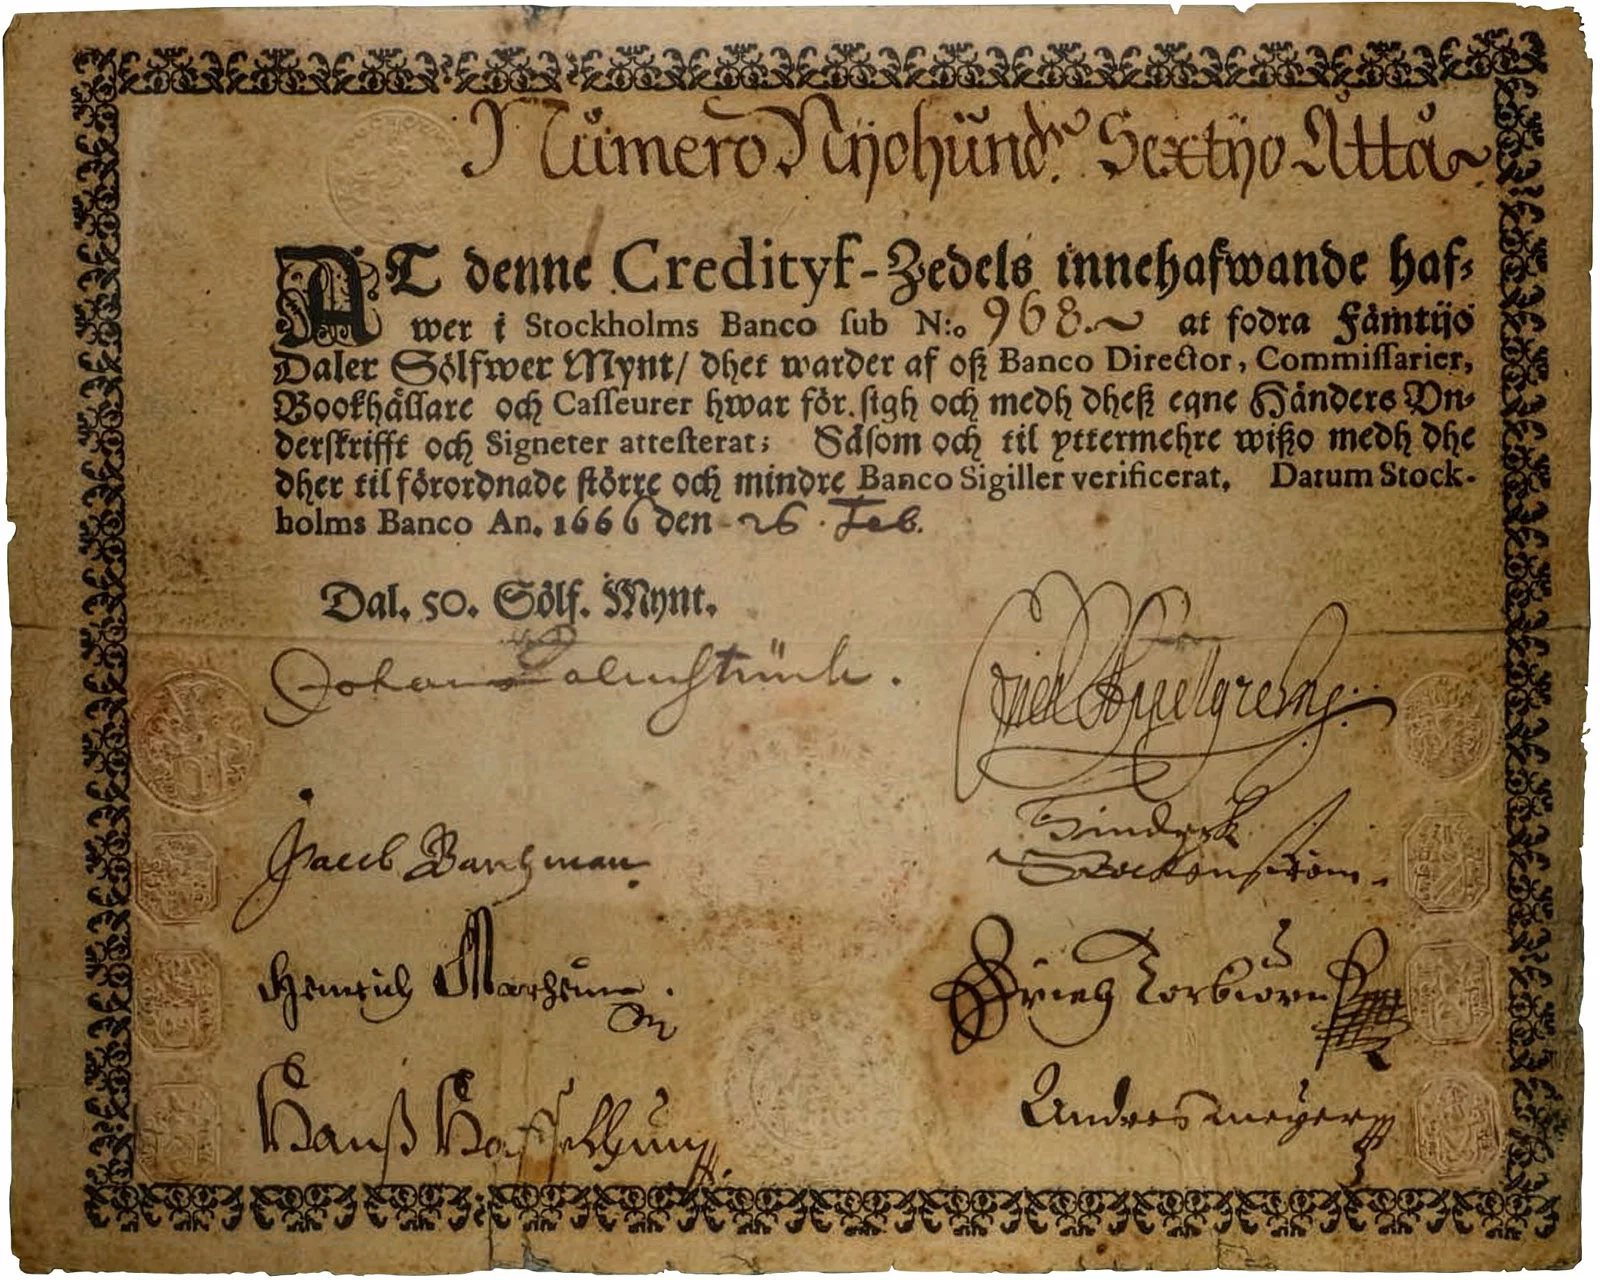 Numero Nijohundr. Sextijo Åtta
AT denne Credityf-Zedels innehafwande haf-
wer i Stockholms Banco ſub N:o 968. at fodra Fämtijo
Daler Sölfwer Mynt/ dhet warder af oß Banco Director, Commiſſarier,
Bookhållare och Caſſeurer hwar för ſigh och medh dheß egne Händers Vn-
derſkrifft och Signeter atteſterat; Såſom och til yttermehre wißo medh dhe
dher til förordnade ſtörre och mindre Banco Sigiller verificerat. Datum Stock-
holms Banco An. 1666 den 26. Feb.
Dal. 50. Sölf. Mynt.
Johan Palmſtruch.
Appelgrehn
Jacob Barchman
Hinderk
Heinrich
Erich Torbiörn
Hanß
Anders meyer